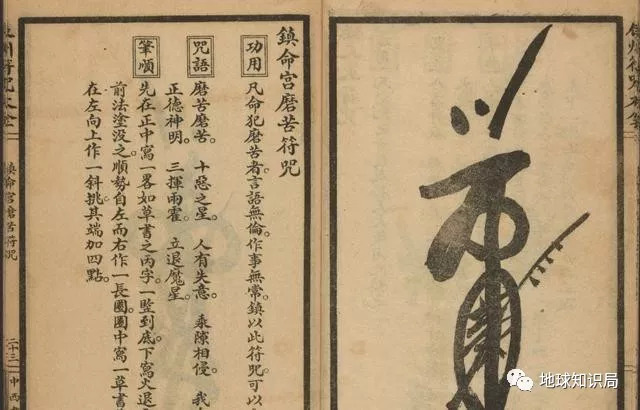 鎮命宮磨苦符咒
功用
凡命犯磨苦者。言語無倫。作事無常。鎮以此符咒。可以
咒語
磨苦磨苦。十惡之星。人有失意。乘隙相侵。我
正德神明。三揮雨霍。立退魔星。
筆順
先在正中寫一畧如草書之丙字。一竪到底。下寫火退之
前法塗沒之。順勢自左而右作一長圈。圈中寫一草書
在左向上作一斜挑。其端加四點。
三十三
中西
地球知识局